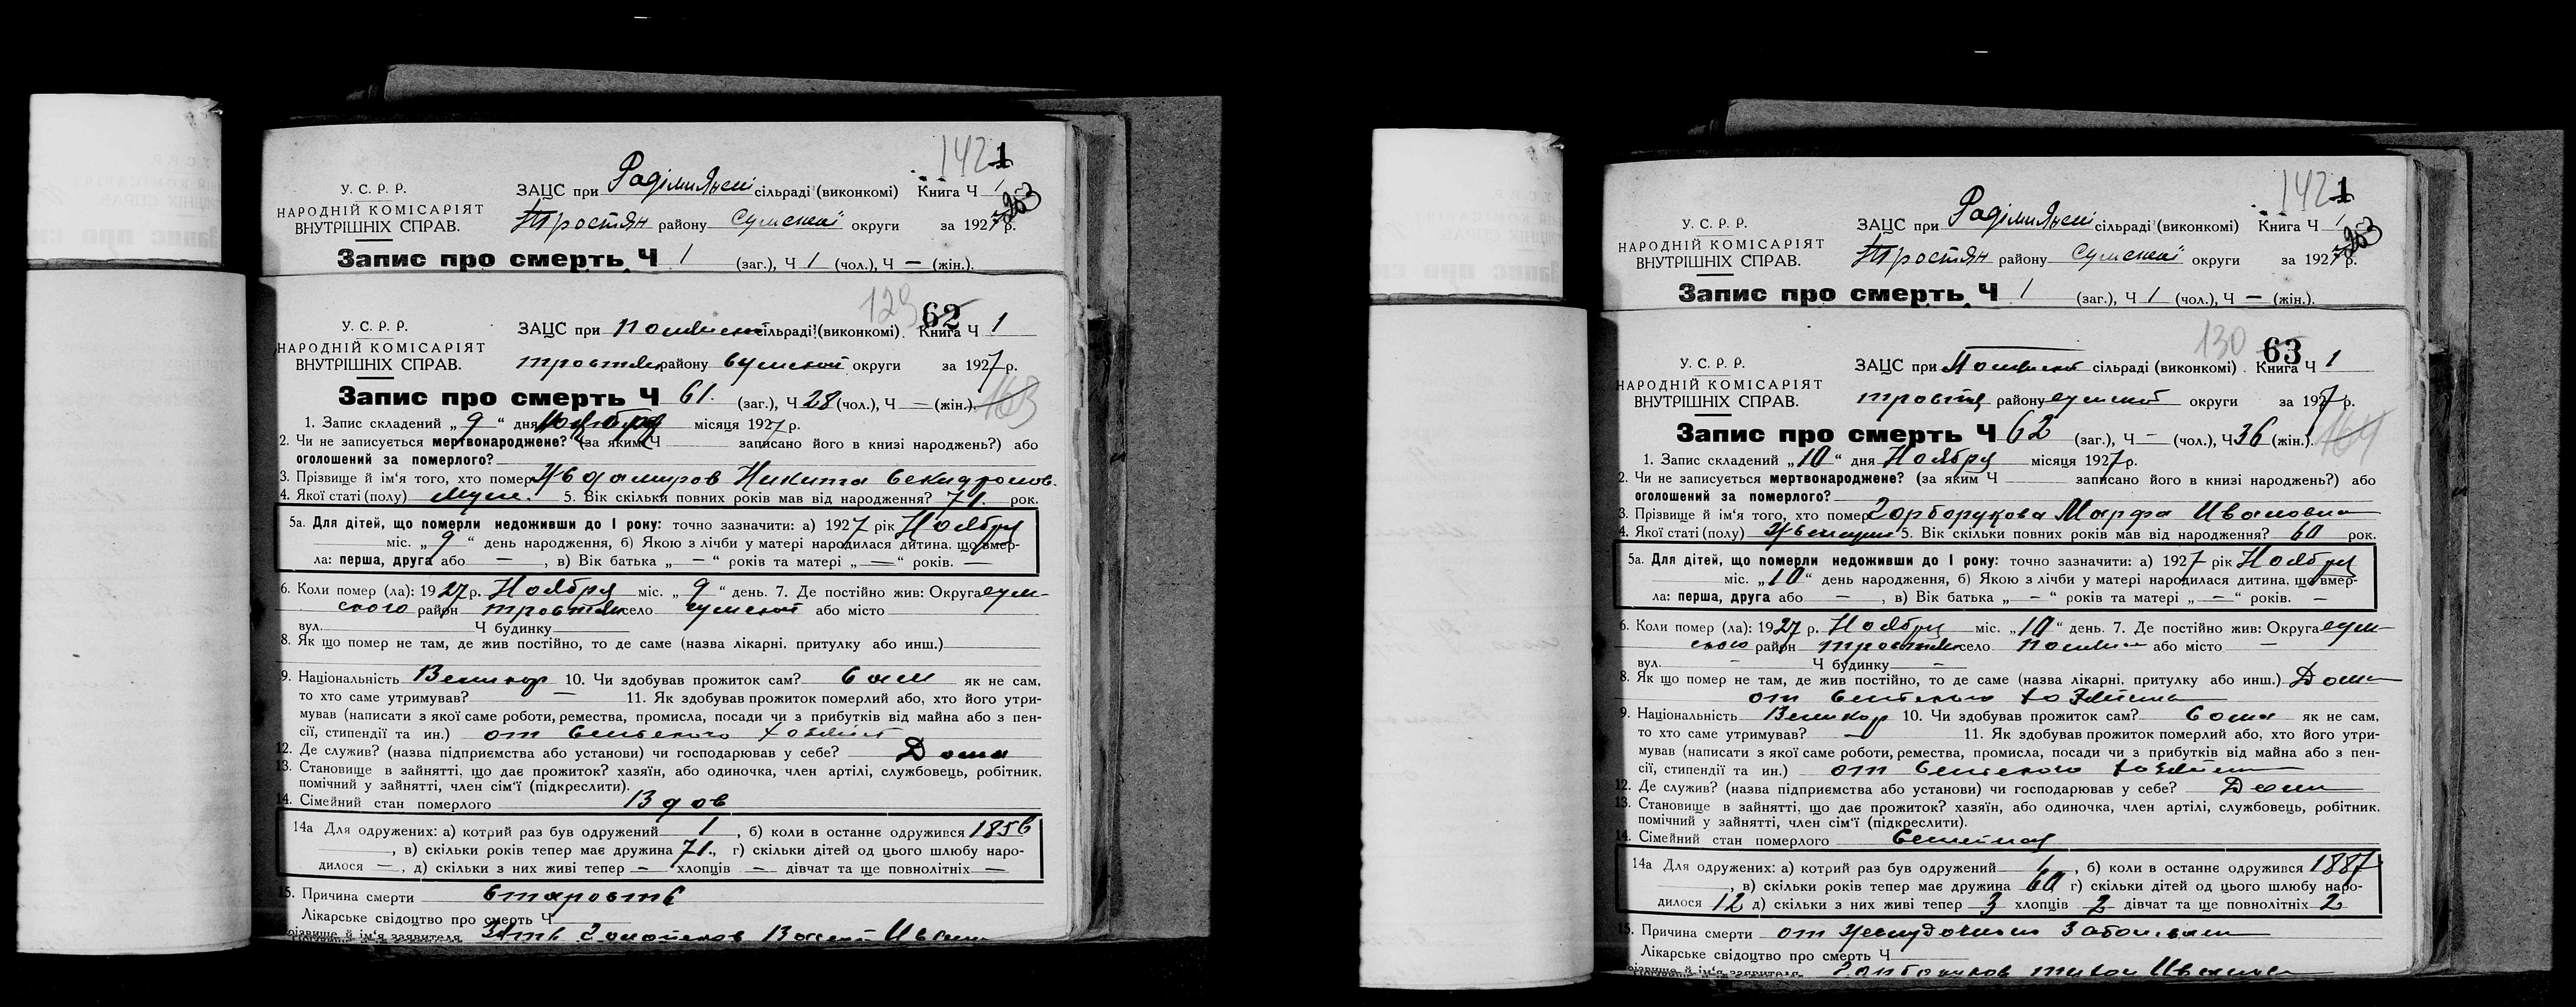 142 1
У. С. Р. Р. ЗАЦС при сільраді (виконкомі) Книга Ч 1
НАРОДНІЙ КОМІСАРІЯТ Тростян району Сумской округи за 1927 р.
ВНУТРІШНІХ СПРАВ.
Запис про смерть Ч 1 (заг.), Ч 1 (чол.), Ч — (жін.).
129 62
У. С. Р. Р. ЗАЦС при сільраді (виконкомі). Книга Ч 1
НАРОДНІЙ КОМІСАРІЯТ тростян району сумской округи за 1927 р.
ВНУТРІШНІХ СПРАВ.
Запис про смерть Ч 61. (заг.), Ч 28 (чол.), Ч — (жін.). 163
1. Запис складений „ 9 “ дня Ноября місяця 1927 р.
2. Чи не записується мертвонароджене? (за яким Ч записано його в книзі народжень?) або
оголошений за померлого?
3. Прізвище й ім'я того, хто помер Никита
4. Якої статі (полу) Муж. 5. Вік скільки повних років мав від народження? 71. рок.
5а. Для дітей, що померли недоживши до 1 року: точно зазначити: а) 1927 рік Ноября
міс. „ 9 “ день народження, б) Якою з лічби у матері народилася дитина, що вмер-
ла: перша, друга або — , в) Вік батька „ — “ років та матері „ — “ років. —
6. Коли помер (ла): 1927 р. Ноября міс. „ 9 “ день. 7. Де постійно жив: Округа сум-
ского район тростян село сумской або місто
вул. Ч будинку
8. Як що помер не там, де жив постійно, то де саме (назва лікарні, притулку або инш.)
9. Національність Великор 10. Чи здобував прожиток сам? сам як не сам,
то хто саме утримував? — 11. Як здобував прожиток померлий або, хто його утри-
мував (написати з якої саме роботи, ремества, промисла, посади чи з прибутків від майна або з пен-
сії, стипендії та ин.) от сельского хозяйст
12. Де служив? (назва підприємства або установи) чи господарював у себе? Дома
13. Становище в зайнятті, що дає прожиток? хазяїн, або одиночка, член артілі, службовець, робітник,
помічний у зайнятті, член сім'ї (підкреслити).
14. Сімейний стан померлого Вдов
14а Для одружених: а) котрий раз був одружений 1 , б) коли в останнє одружився 1856
, в) скільки років тепер має дружина 71., г) скільки дітей од цього шлюбу наро-
дилося —, д) скільки з них живі тепер — хлопців — дівчат та ще повнолітніх —
15. Причина смерти старость
Лікарське свідоцтво про смерть Ч
Прізвище й ім'я заявителя Зять
142 1
У. С. Р. Р. ЗАЦС при сільраді (виконкомі) Книга Ч 1
НАРОДНІЙ КОМІСАРІЯТ Тростян району Сумской округи за 1927 р.
ВНУТРІШНІХ СПРАВ.
Запис про смерть Ч 1 (заг.), Ч 1 (чол.), Ч — (жін.).
130 63
У. С. Р. Р. ЗАЦС при сільраді (виконкомі) . Книга Ч 1
НАРОДНІЙ КОМІСАРІЯТ тростя району сумской округи за 1927 р.
ВНУТРІШНІХ СПРАВ.
Запис про смерть Ч 62 (заг.), Ч — (чол.), Ч 36 (жін.). 164
1. Запис складений „ 10 “ дня Ноября місяця 1927 р.
2. Чи не записується мертвонароджене? (за яким Ч записано його в книзі народжень?) або
оголошений за померлого?
3. Прізвище й ім'я того, хто помер Горборукова Марфа Ивановна
4. Якої статі (полу) Женщин 5. Вік скільки повних років мав від народження? 60 рок.
5а. Для дітей, що померли недоживши до 1 року: точно зазначити: а) 1927 рік Ноября
міс. „ 10 “ день народження, б) Якою з лічби у матері народилася дитина, що вмер-
ла: перша, друга або — , в) Вік батька „ — “ років та матері „ — “ років. —
6. Коли помер (ла): 1927 р. Ноября міс. „ 10 “ день. 7. Де постійно жив: Округа сум-
ского район тростян село або місто —
вул. — Ч будинку —
8. Як що помер не там, де жив постійно, то де саме (назва лікарні, притулку або инш.) Дома
от сельского хозяйства
9. Національність Великор 10. Чи здобував прожиток сам? сама як не сам,
то хто саме утримував? — 11. Як здобував прожиток померлий або, хто його утри-
мував (написати з якої саме роботи, ремества, промисла, посади чи з прибутків від майна або з пен-
сії, стипендії та ин.) от сельского хозяйства
12. Де служив? (назва підприємства або установи) чи господарював у себе? Дома
13. Становище в зайнятті, що дає прожиток? хазяїн, або одиночка, член артілі, службовець, робітник,
помічний у зайнятті, член сім'ї (підкреслити).
14. Сімейний стан померлого Семейная
14а Для одружених: а) котрий раз був одружений 1 , б) коли в останнє одружився 1887
, в) скільки років тепер має дружина 60 г) скільки дітей од цього шлюбу наро-
дилося 12 д) скільки з них живі тепер 3 хлопців 2 дівчат та ще повнолітніх 2
15. Причина смерти от желудочного заболеван
Лікарське свідоцтво про смерть Ч
Прізвище й ім'я заявителя